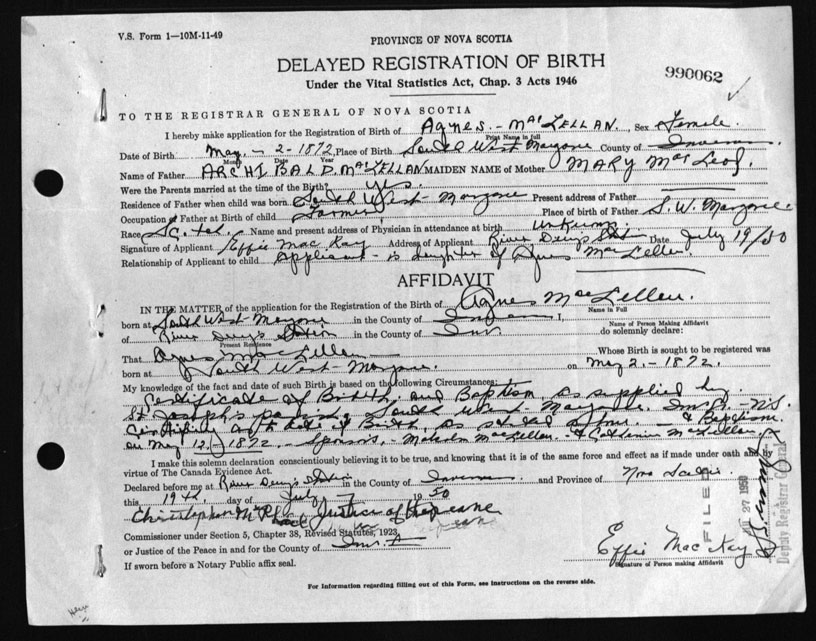 V.S. Form 1—10M-11-49
PROVINCE OF NOVA SCOTIA
DELAYED REGISTRATION OF BIRTH
990062
Under the Vital Statistics Act, Chap. 3 Acts 1946
TO THE REGISTRAR GENERAL OF NOVA SCOTIA
I hereby make application for the Registration of Birth of Agnes - MacLellan, Sex Female
Print Name in full
Date of Birth May - 2 - 1872, Place of Birth South West Margaree County of Inverness
Month Day Year
Name of Father ARCHIBALD. MacLELLAN MAIDEN NAME of Mother MARY MacLeod,
Were the Parents married at the time of the Birth? yes.
Residence of Father when child was born South West Margaree Present address of Father
Occupation of Father at Birth of child Farmer Place of birth of Father S. W. Margaree.
Race Name and present address of Physician in attendance at birth Unknown.
Signature of Applicant Effie MacKay Address of Applicant River Denys Station Date July 19/50
Relationship of Applicant to child Applicant - is daughter of Agnes MacLellan.
AFFIDAVIT
IN THE MATTER of the application for the Registration of the Birth of Agnes MacLellan.
Name in Full
born at South West Margaree in the County of Inverness I,
Name of Person Making Affidavit
of River Denys Station in the County of Inv. do solemnly declare:
Present Residence
That Agnes MacLellan Whose Birth is sought to be registered was
born at South West Margaree. on May 2 - 1872.
My knowledge of the fact and date of such Birth is based on the following Circumstances:
Certificate of Birth, and Baptism, as supplied by
St Joseph's parish, South West Margaree. Inv. Co. - N.S.
Certifying date of Birth, as stated & Baptism.
on May 12 - 1872 - Sponsors, - Malcolm MacLellan - & Catherine MacLellan
I make this solemn declaration conscientiously believing it to be true, and knowing that it is of the same force and effect as if made under oath and by
virtue of The Canada Evidence Act.
Declared before me at River Denys Station in the County of Inverness and Province of Nova Scotia
this 19th day of July 1950
Christopher Justice of the peace
Commissioner under Section 5, Chapter 38, Revised Statutes, 1923,
or Justice of the Peace in and for the County of Inv.
If sworn before a Notary Public affix seal.
Effie MacKay
Signature of Person making Affidavit
FILED
27 1950
Deputy Registrar General
For Information regarding filling out of this Form, see instructions on the reverse side.